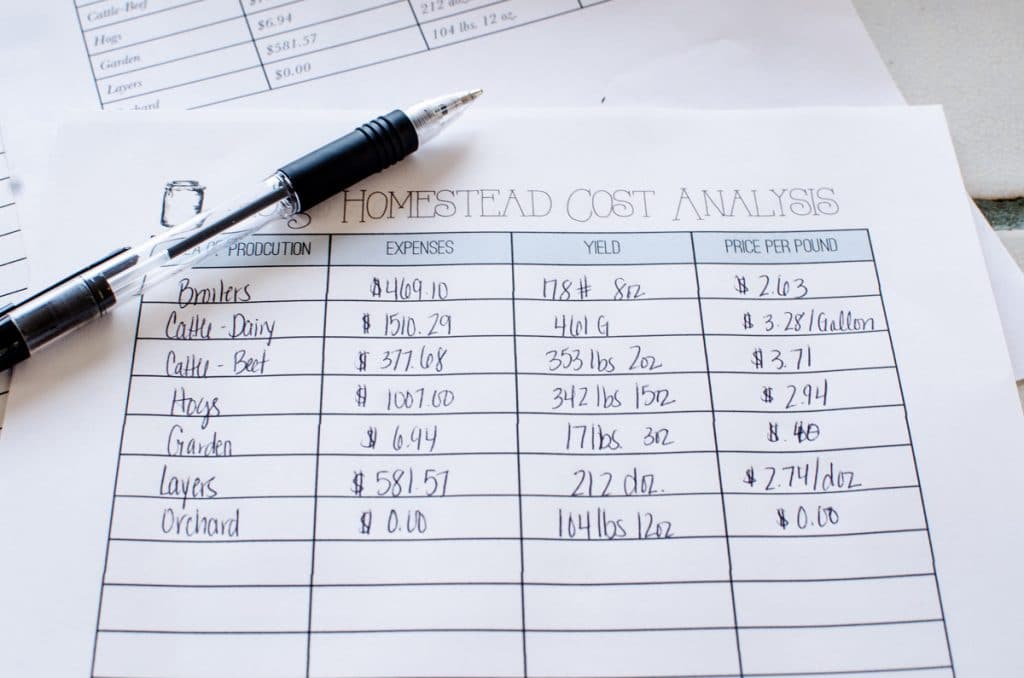 Cattle-Beef
Hogs $6.94 212
Garden $581.57 104 lbs. 12 oz.
Layers $0.00
HOMESTEAD COST ANALYSIS
OF PRODCUTION EXPENSES YIELD PRICE PER POUND
Broilers $469.10 178# 8oz $2.63
Cattle-Dairy $1510.29 461 G $3.28/Gallon
Cattle-Beef $377.68 353 lbs 2oz $3.71
Hogs $1007.00 342 lbs 15oz $2.94
Garden $6.94 17 lbs. 3oz $.40
Layers $581.57 212 doz. $2.74/doz
Orchard $0.00 104 lbs 12oz $0.00